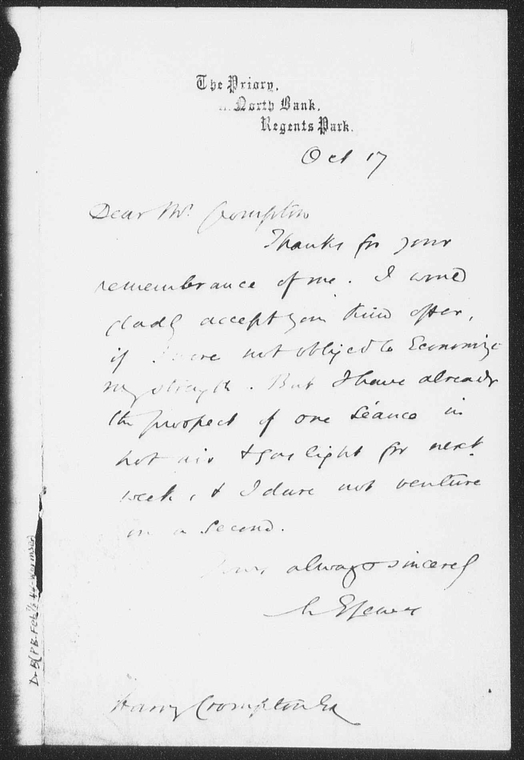 The Priory,
North Bank,
Regents Park.
Oct 17
Dear Mr. Crompton
Thanks for your
remembrance of me. I would
gladly accept your kind offer,
if I were not obliged to Economize
my strength. But I have already
the prospect of one séance in
hot air & gas light for next
week, & I dare not venture
on a second.
Yours always sincerely
M E Lewes
Harry Crompton Esq